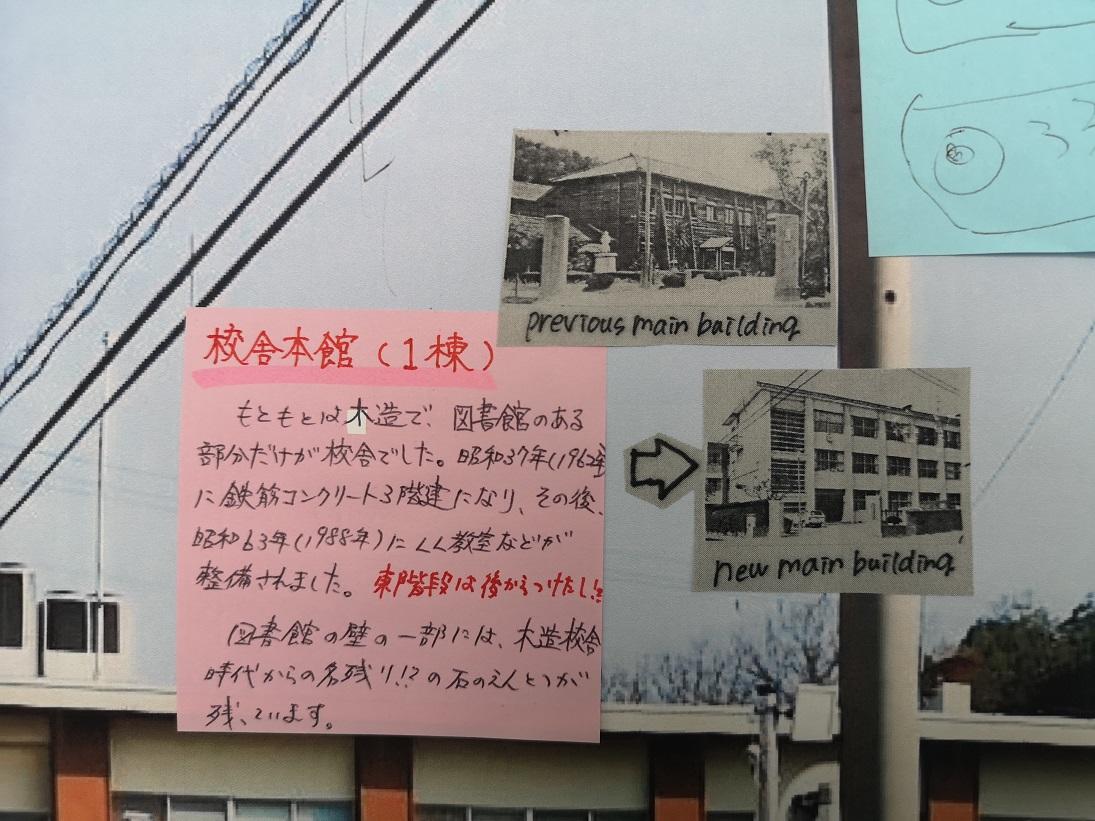 previous main building
校舎本館(1棟)
もともとは木造で、図書館のある
部分だけが校舎でした。昭和37年(1962年
に鉄筋コンクリート3階建になり、その後、
昭和63年(1988年)にLL教室などが
整備されました。東階段は後からつけたし!!
図書館の壁の一部には、木造校舎
時代からの名残り!?の石のえんとつが
残っています。
new main building